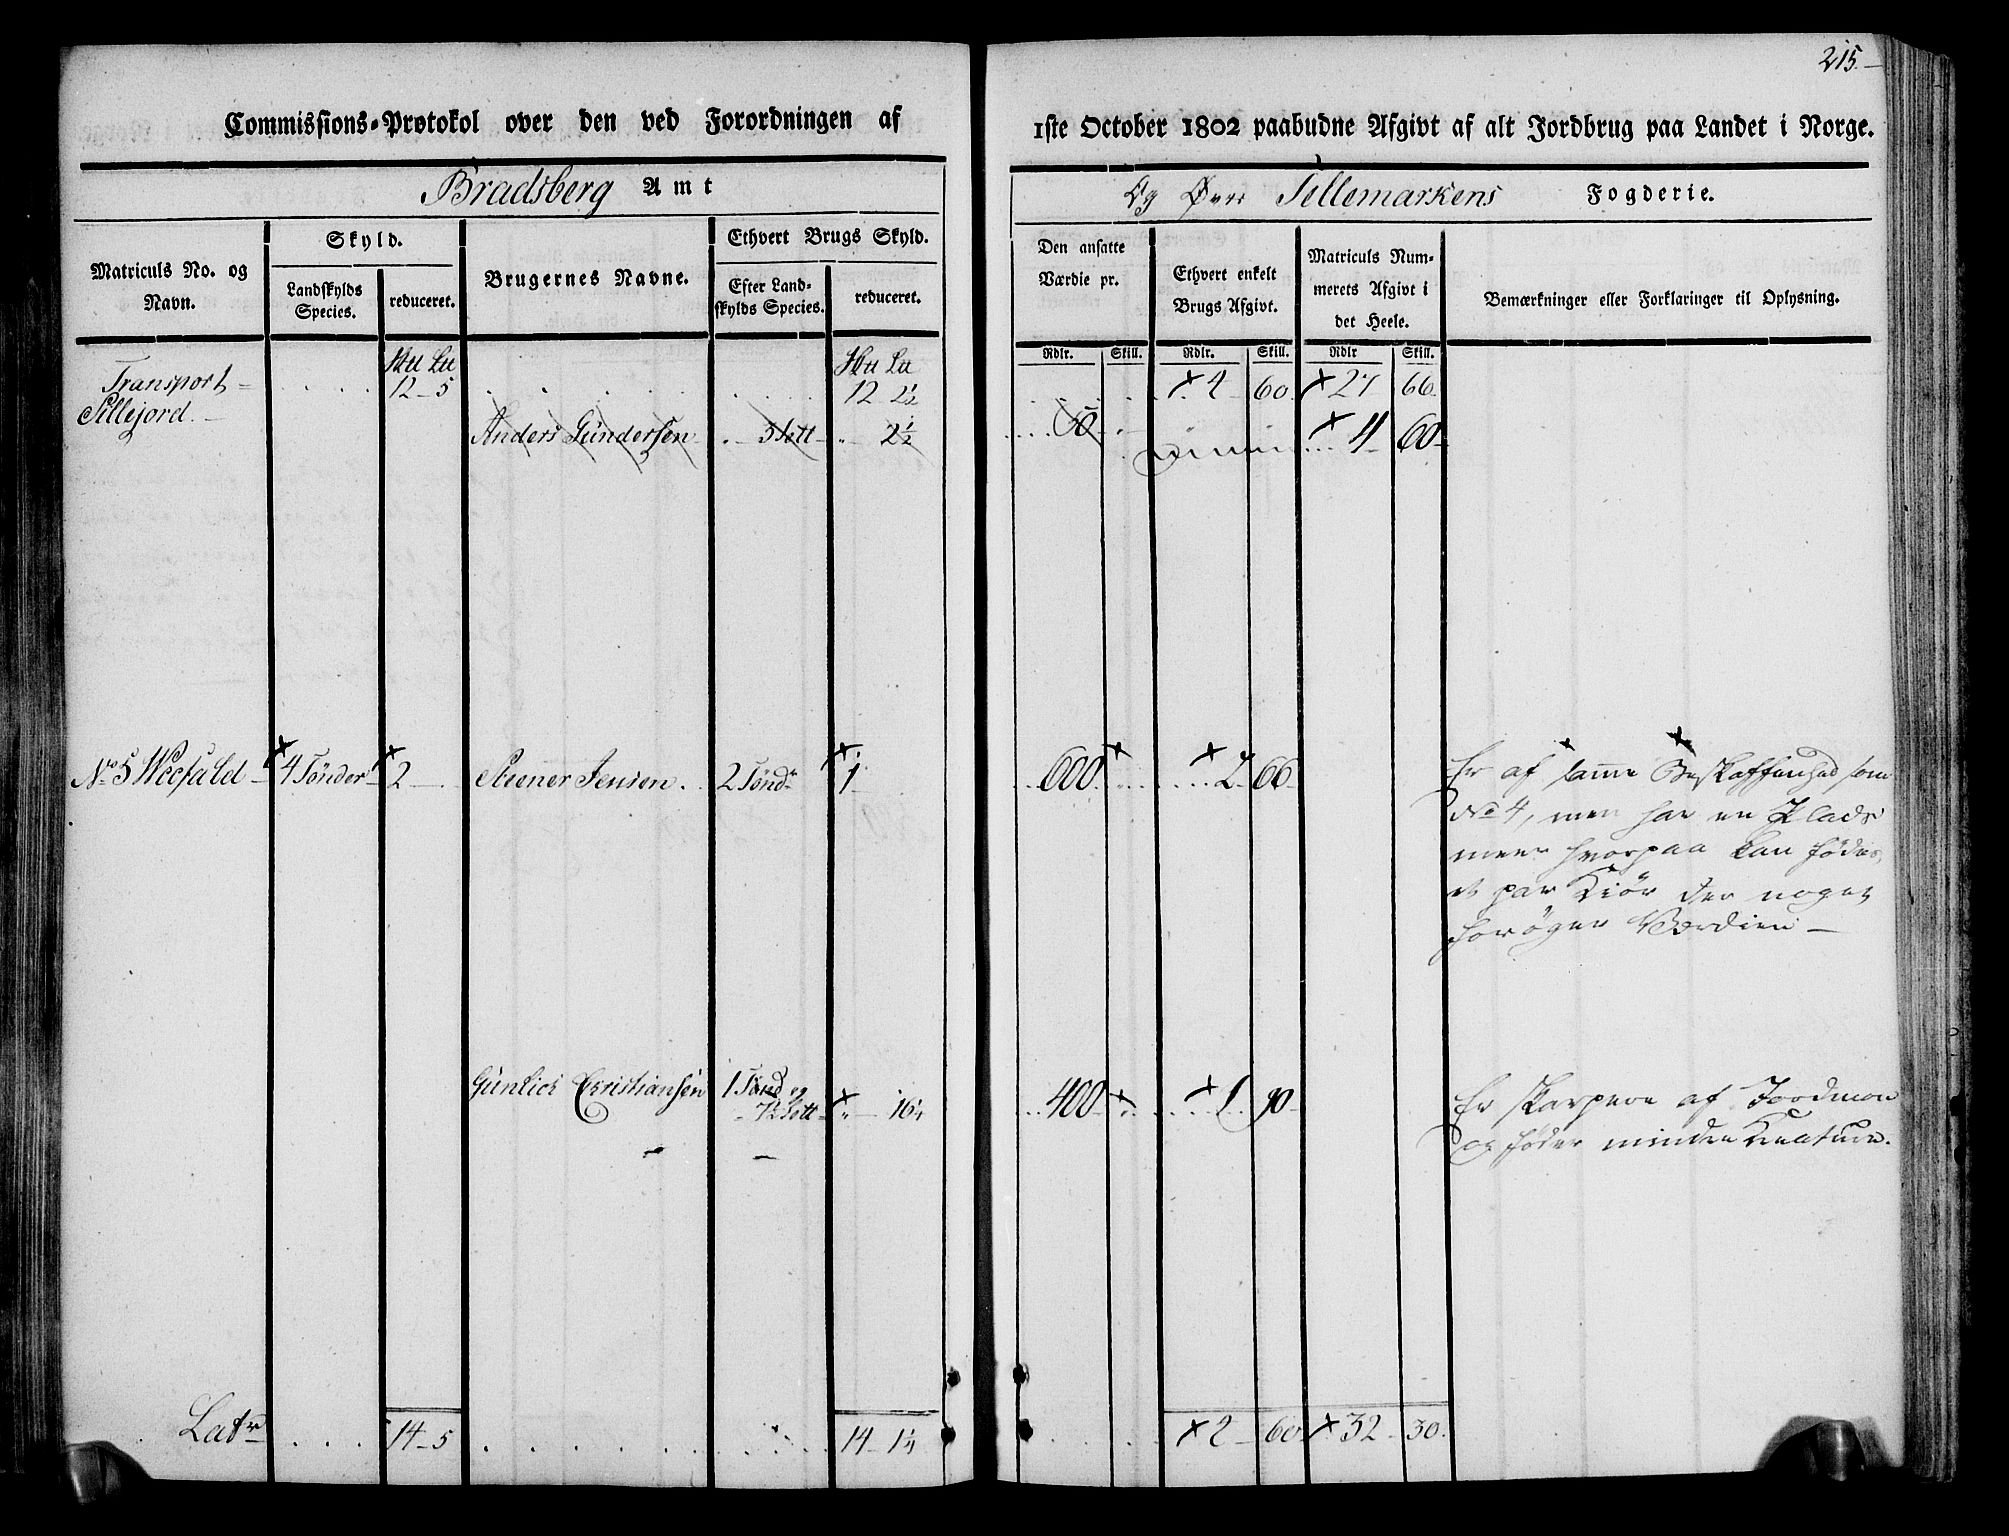 215.
Commissions-Protokol over den ved Forordningen af
1ste October 1802 paabudne Afgivt af alt Jordbrug paa Landet i Norge.
Bradsberg Amt
Og Øvre Tellemarkens Fogderie.
Matriculs No. og Navn.
Skyld.
Landskylds Species.
reduceret.
Brugernes Navne.
Ethvert Brugs Skyld.
Efter Landskylds Species.
reduceret.
Den ansatte Værdie pr.
Ethvert enkelt Brugs Afgivt.
Matriculs Nummerets Afgivt i det Heele.
Bemærkninger eller Forklaringer til Oplysning.
Rdlr. Skill. Rdlr. Skill. Rdlr Skill.
Hu Lu Hu Lu
Transport 12 5 12 2½ 4 60 27 66
Sillejord.
Anders Gundersen 3 Sett 2½ 50 4 60
No 5 Weefald 4 Tönder 2 Steener Jensen. 2 Tönd 1 600 2 66
Er af samme Beskaffenhed som
No 4, men har en Plads
meer hvorpaa kan födes
et par Kiör der noget
foröger Værdien
Gunlich Christiansen 1 Tönd og
7½ Sett 16¼ 400 1 90
Er skarpere af Jordmon
og föder mindre Creature.
Latr 14 5 14 1¼ 2 60 32 30